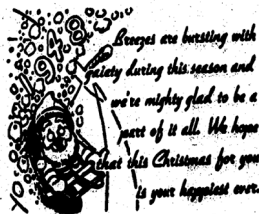 Breezes are bursting with
gaiety during this season and
we're mighty glad to be a
part of it all. We hope
that this Christmas for you
is your happiest ever.